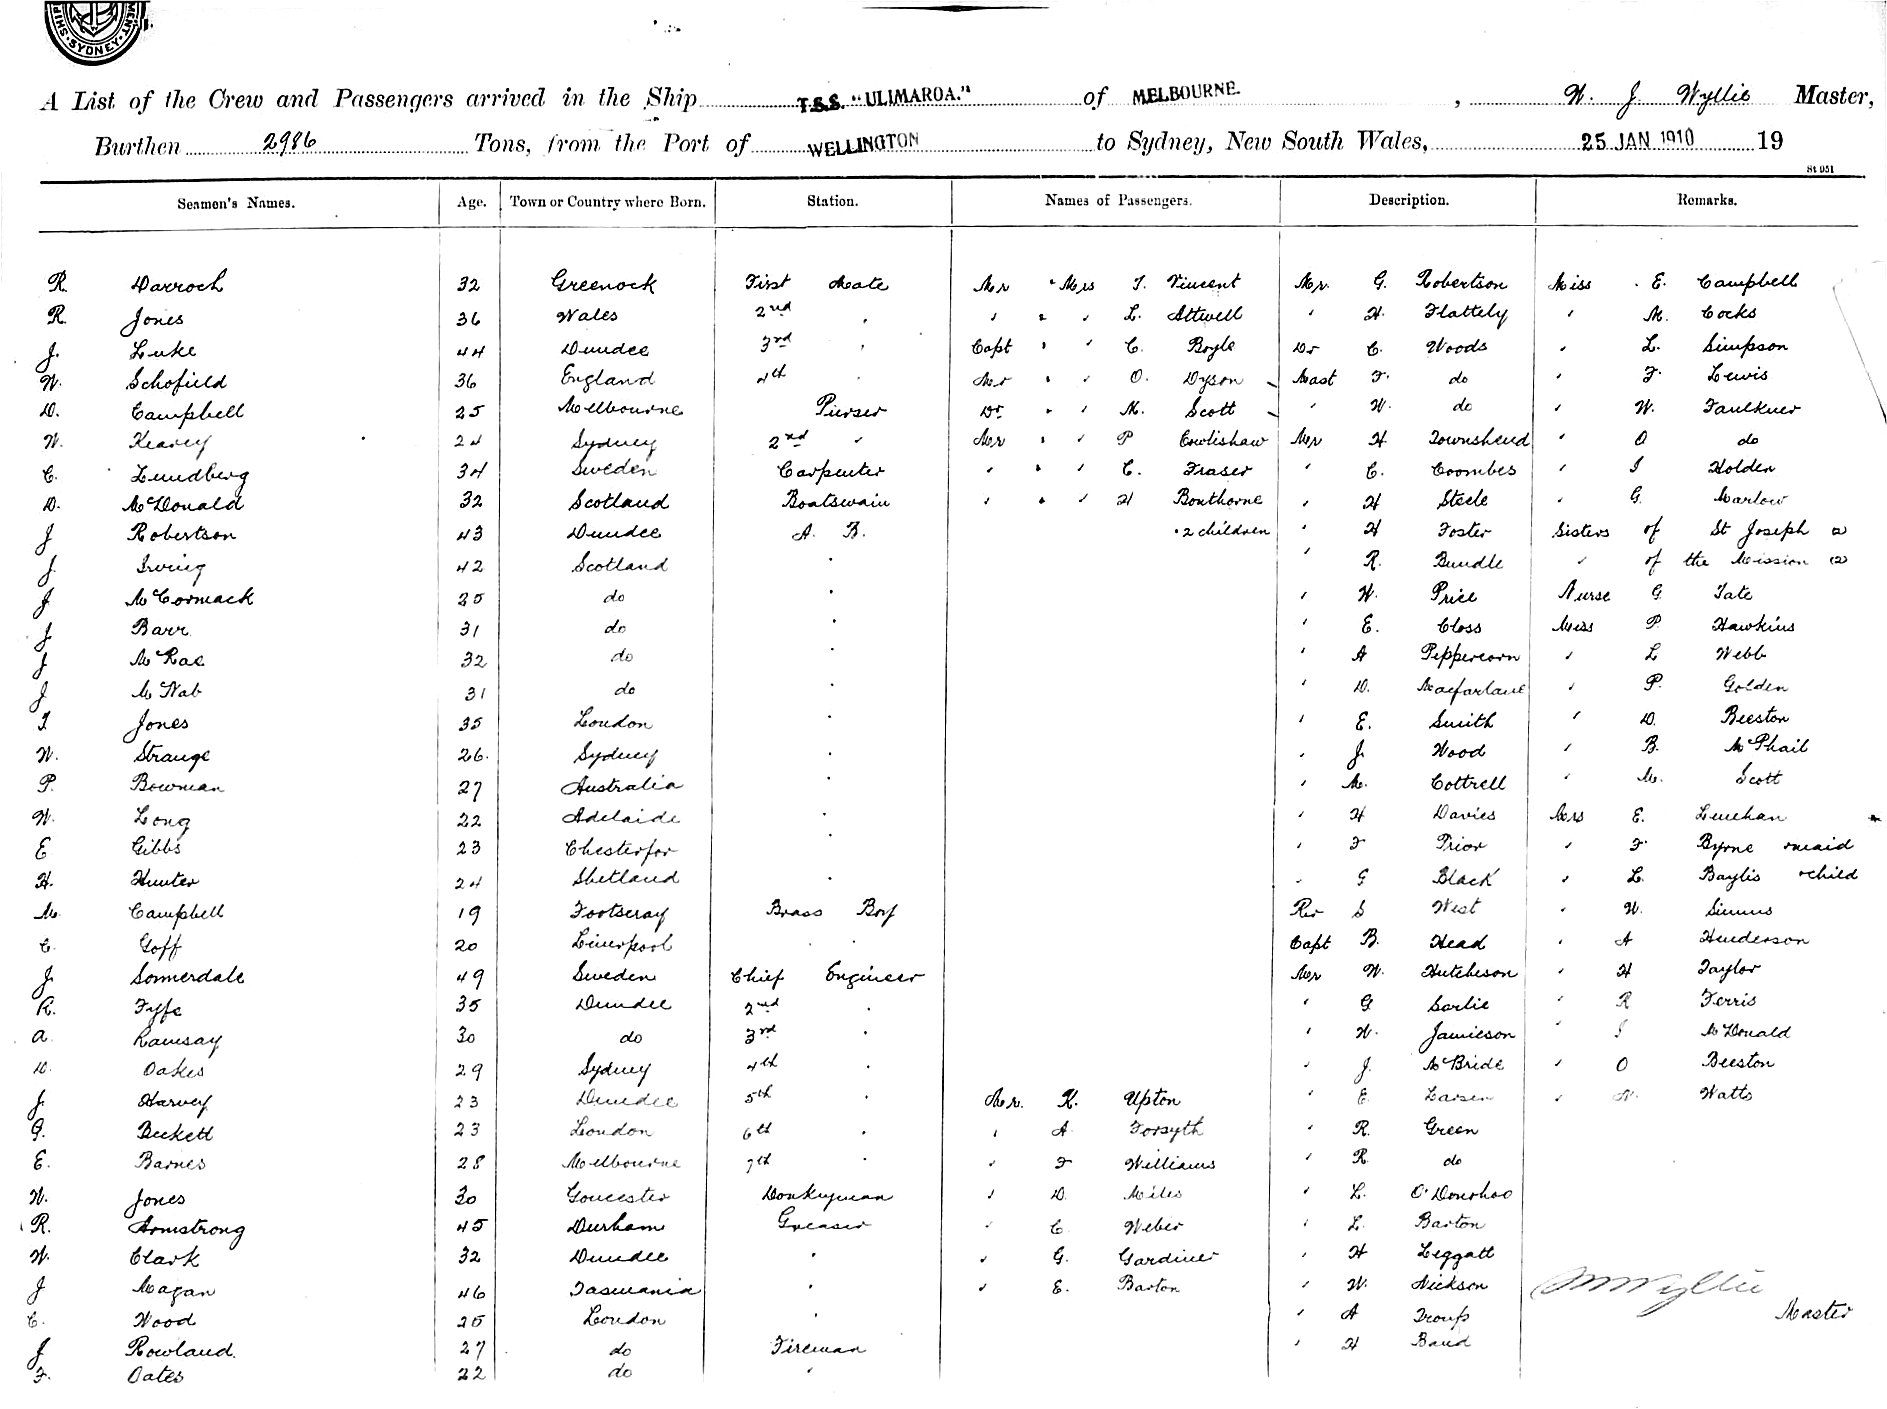 SHIP MENT SYDNEY
A List of the Crew and Passengers arrived in the Ship T.S.S. "ULIMAROA." of MELBOURNE. , W. J. Wyllie Master,
Burthen 2986 Tons, from the Port of WELLINGTON to Sydney, New South Wales, 25 JAN 1910 19
St 051
Seamen's Names. Age. Town or Country where Born. Station. Names of Passengers. Description. Remarks.
R. Darroch 32 Greenock First Mate Mr " Mrs T. Vincent Mr. G. Robertson Miss E. Campbell
R. Jones 36 Wales 2nd " " " " L. Attwell " H. Flattely " M. Cocks
J. Luke 44 Dundee 3rd " Capt " " C. Boyle Dr C. Woods " L. Simpson
W. Schofield 36 England 4th " Mr " " O. Dyson Mast F. do " F. Lewis
D. Campbell 25 Melbourne Purser Dr " " M. Scott " W. do " W. Faulkner
W. Kearey 24 Sydney 2nd " Mr " " P Cowlishaw Mr H. Townshend " O do
C. Lundberg 34 Sweden Carpenter " " " C. Fraser " C. Coombes " I Holden
D. McDonald 32 Scotland Boatswain " " " H Bonthorne " H Steele " G. Marlow
J Robertson 43 Dundee A. B. " 2 children " H Foster Sisters of St Joseph (2)
J. Irving 42 Scotland " " R. Bundle " of the Mission (2)
J McCormack 25 do " " W. Price Nurse G Tate
J Barr 31 do " " E. Closs Miss P. Hawkins
J McRae 32 do " " A Peppercorn " L Webb
J McNab 31 do " " D. Macfarlane " P. Golden
T Jones 35 London " " E. Smith " D. Beeston
W. Strange 26. Sydney " " J. Wood " B. McPhail
P. Bowman 27 Australia " " M. Cottrell " M. Scott
W. Long 22 Adelaide " " H Davies Mrs E. Linehan
E Gibbs 23 Chesterfor " " F Prior " F. Byrne maid
H. Hunter 24 Shetland " " G Black " L. Baylis child
M. Campbell 19 Footscray Brass Boy Rev S West " W. Simms
C. Goff 20 Liverpool " " Capt B. Head " A Henderson
J. Sonnerdale 49 Sweden Chief Engineer Mr W. Hutcheson " H Taylor
R. Fyfe 35 Dundee 2nd " " G Sarlie " R Ferris
A Ramsay 30 do 3rd " " W. Jamieson " I McDonald
D. Oakes 29 Sydney 4th " " J. McBride " O Beeston
J. Harvey 23 Dundee 5th " Mr. K. Upton " E. Larsen " Watts
G. Beckett 23 London 6th " " A Forsyth " R. Green
E. Barnes 28 Melbourne 7th " " F Williams " R. do
W. Jones 30 Goucester Donkeyman " D. Miles " L. O'Donohoo
R. Armstrong 45 Durham Greaser " C. Weber " L. Barton
W. Clark 32 Dundee " " G. Gardiner " H Leggatt
J Magan 46 Tasmania " " E. Barton " W. Dickson W Wyllie
C. Wood 25 London " " A Troup Master
J Rowland. 27 do Fireman " H Band
F. Oates 22 do "